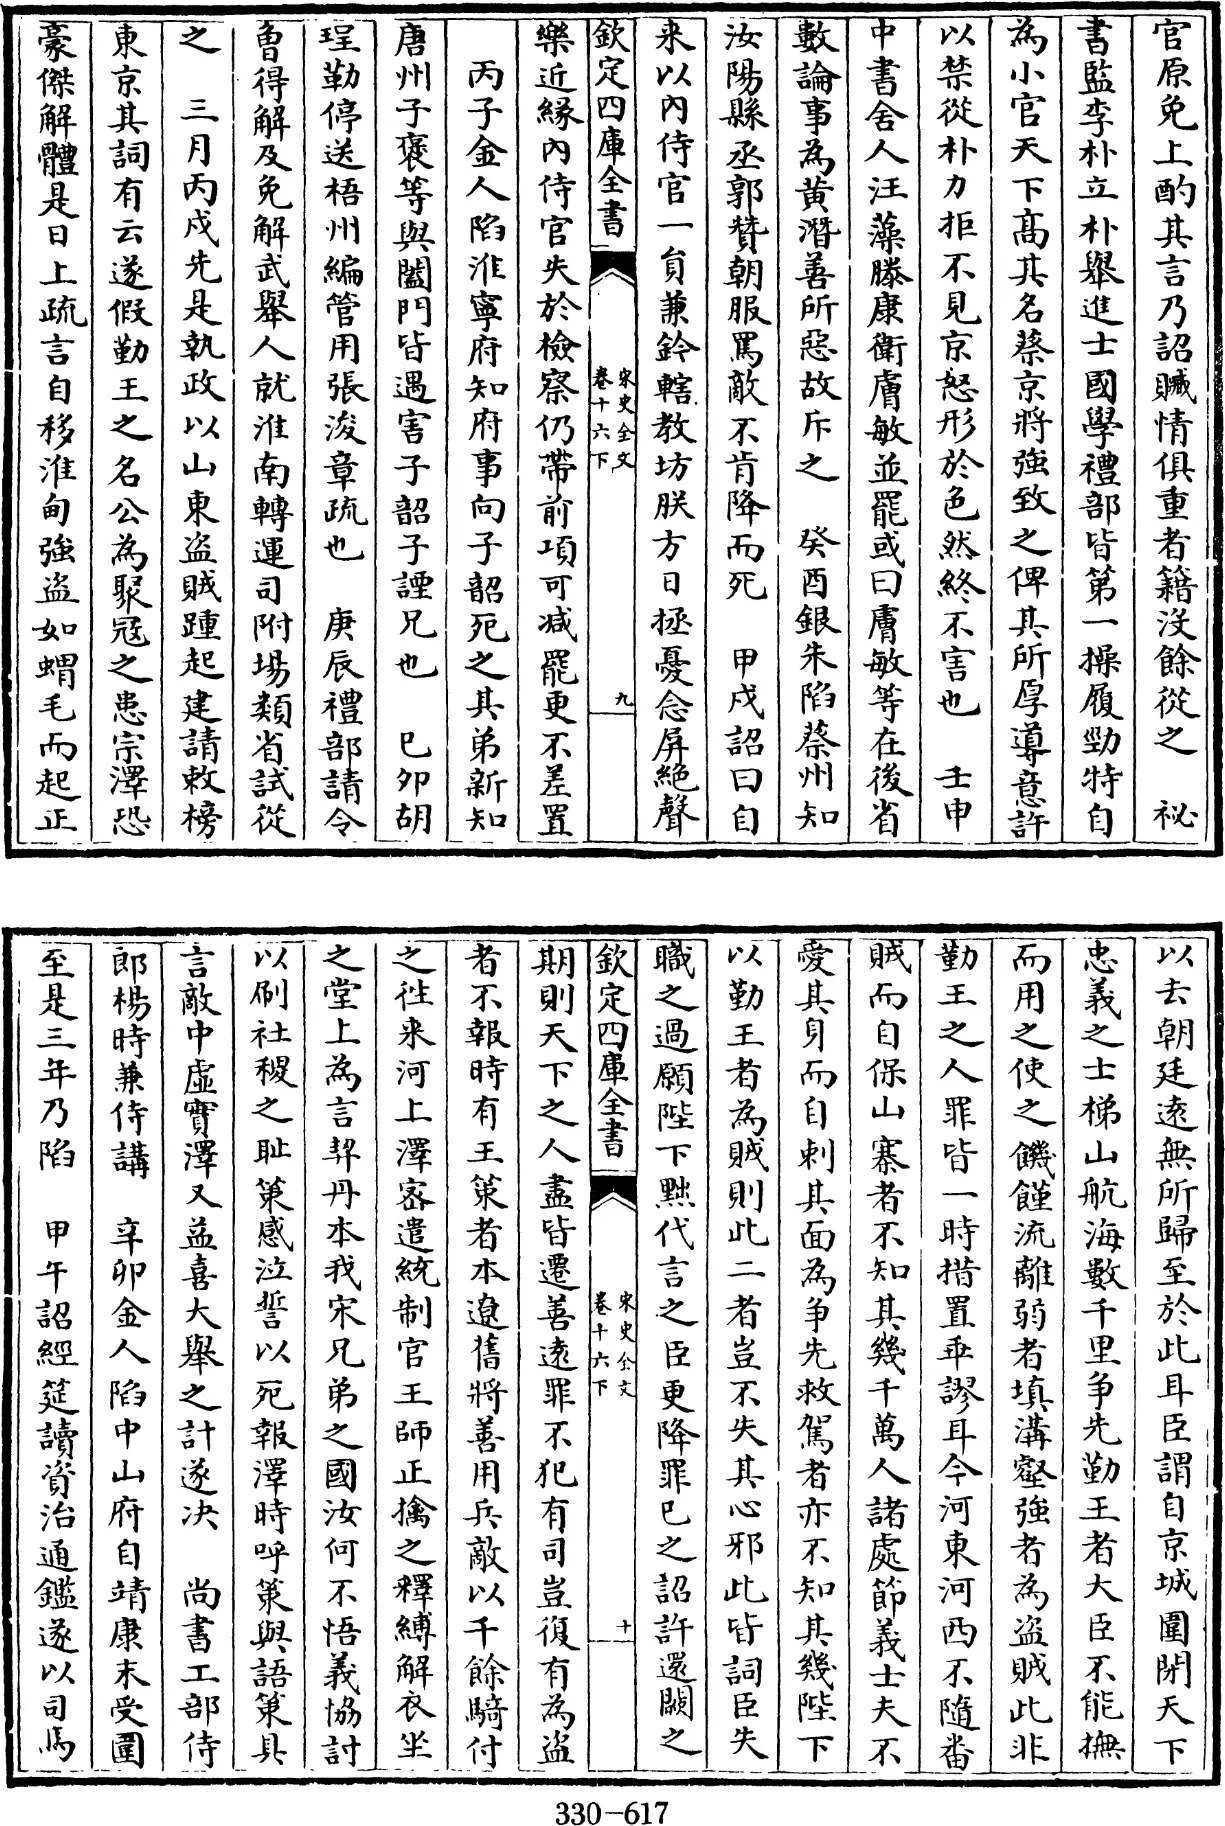 官原免上酌其言乃詔贓情俱重者籍没餘從之　秘
書監李朴立朴舉進士國學禮部皆第一操履勁特自
為小官天下髙其名蔡京將強致之俾其所厚導意許
以禁從朴力拒不見京怒形於色然終不害也　壬申
中書舍人汪藻滕康衛膚敏並罷或曰膚敏等在後省
數論事為黄潛善所惡故斥之　癸酉銀朱陷蔡州知
汝陽縣丞郭賛朝服罵敵不肯降而死　甲戌詔曰自
来以内侍官一員兼鈐轄教坊朕方日拯憂念屏絶聲
欽定四庫全書
宋史全文
卷十六下
九
樂近緣内侍官失於檢察仍帶前項可减罷更不差置
丙子金人陷淮寧府知府事向子韶死之其弟新知
唐州子褒等與闔門皆遇害子韶子諲兄也　已卯胡
珵勒停送梧州編管用張浚章疏也　庚辰禮部請令
魯得解及免解武舉人就淮南轉運司附場類省試從
之　三月丙戌先是執政以山東盗賊踵起建請敕榜
東京其詞有云遂假勤王之名公為聚冦之患宗澤恐
豪傑解體是日上疏言自移淮甸強盗如蝟毛而起正
以去朝廷逺無所歸至於此耳臣謂自京城圍閉天下
忠義之士梯山航海數千里争先勤王者大臣不能撫
而用之使之饑饉流離弱者填溝壑強者為盗賊此非
勤王之人罪皆一時措置乖謬耳今河東河西不隨番
賊而自保山寨者不知其幾千萬人諸處節義士夫不
愛其身而自刺其面為争先救駕者亦不知其幾陛下
以勤王者為賊則此二者豈不失其心邪此皆詞臣失
職之過願陛下黜代言之臣更降罪已之詔許還闕之
欽定四庫全書
宋史全文
卷十六下
十
期則天下之人盡皆遷善逺罪不犯有司豈復有為盗
者不報時有王策者本遼舊將善用兵敵以千餘騎付
之往来河上澤宻遣統制官王師正擒之釋縛解衣坐
之堂上為言契丹本我宋兄弟之國汝何不悟義協討
以刷社稷之耻策感泣誓以死報澤時呼策與語策具
言敵中虚實澤又益喜大舉之計遂决　尚書工部侍
郎楊時兼侍講　辛卯金人陷中山府自靖康末受圍
至是三年乃陷　甲午詔經筵讀資治通鑑遂以司馬
330-617